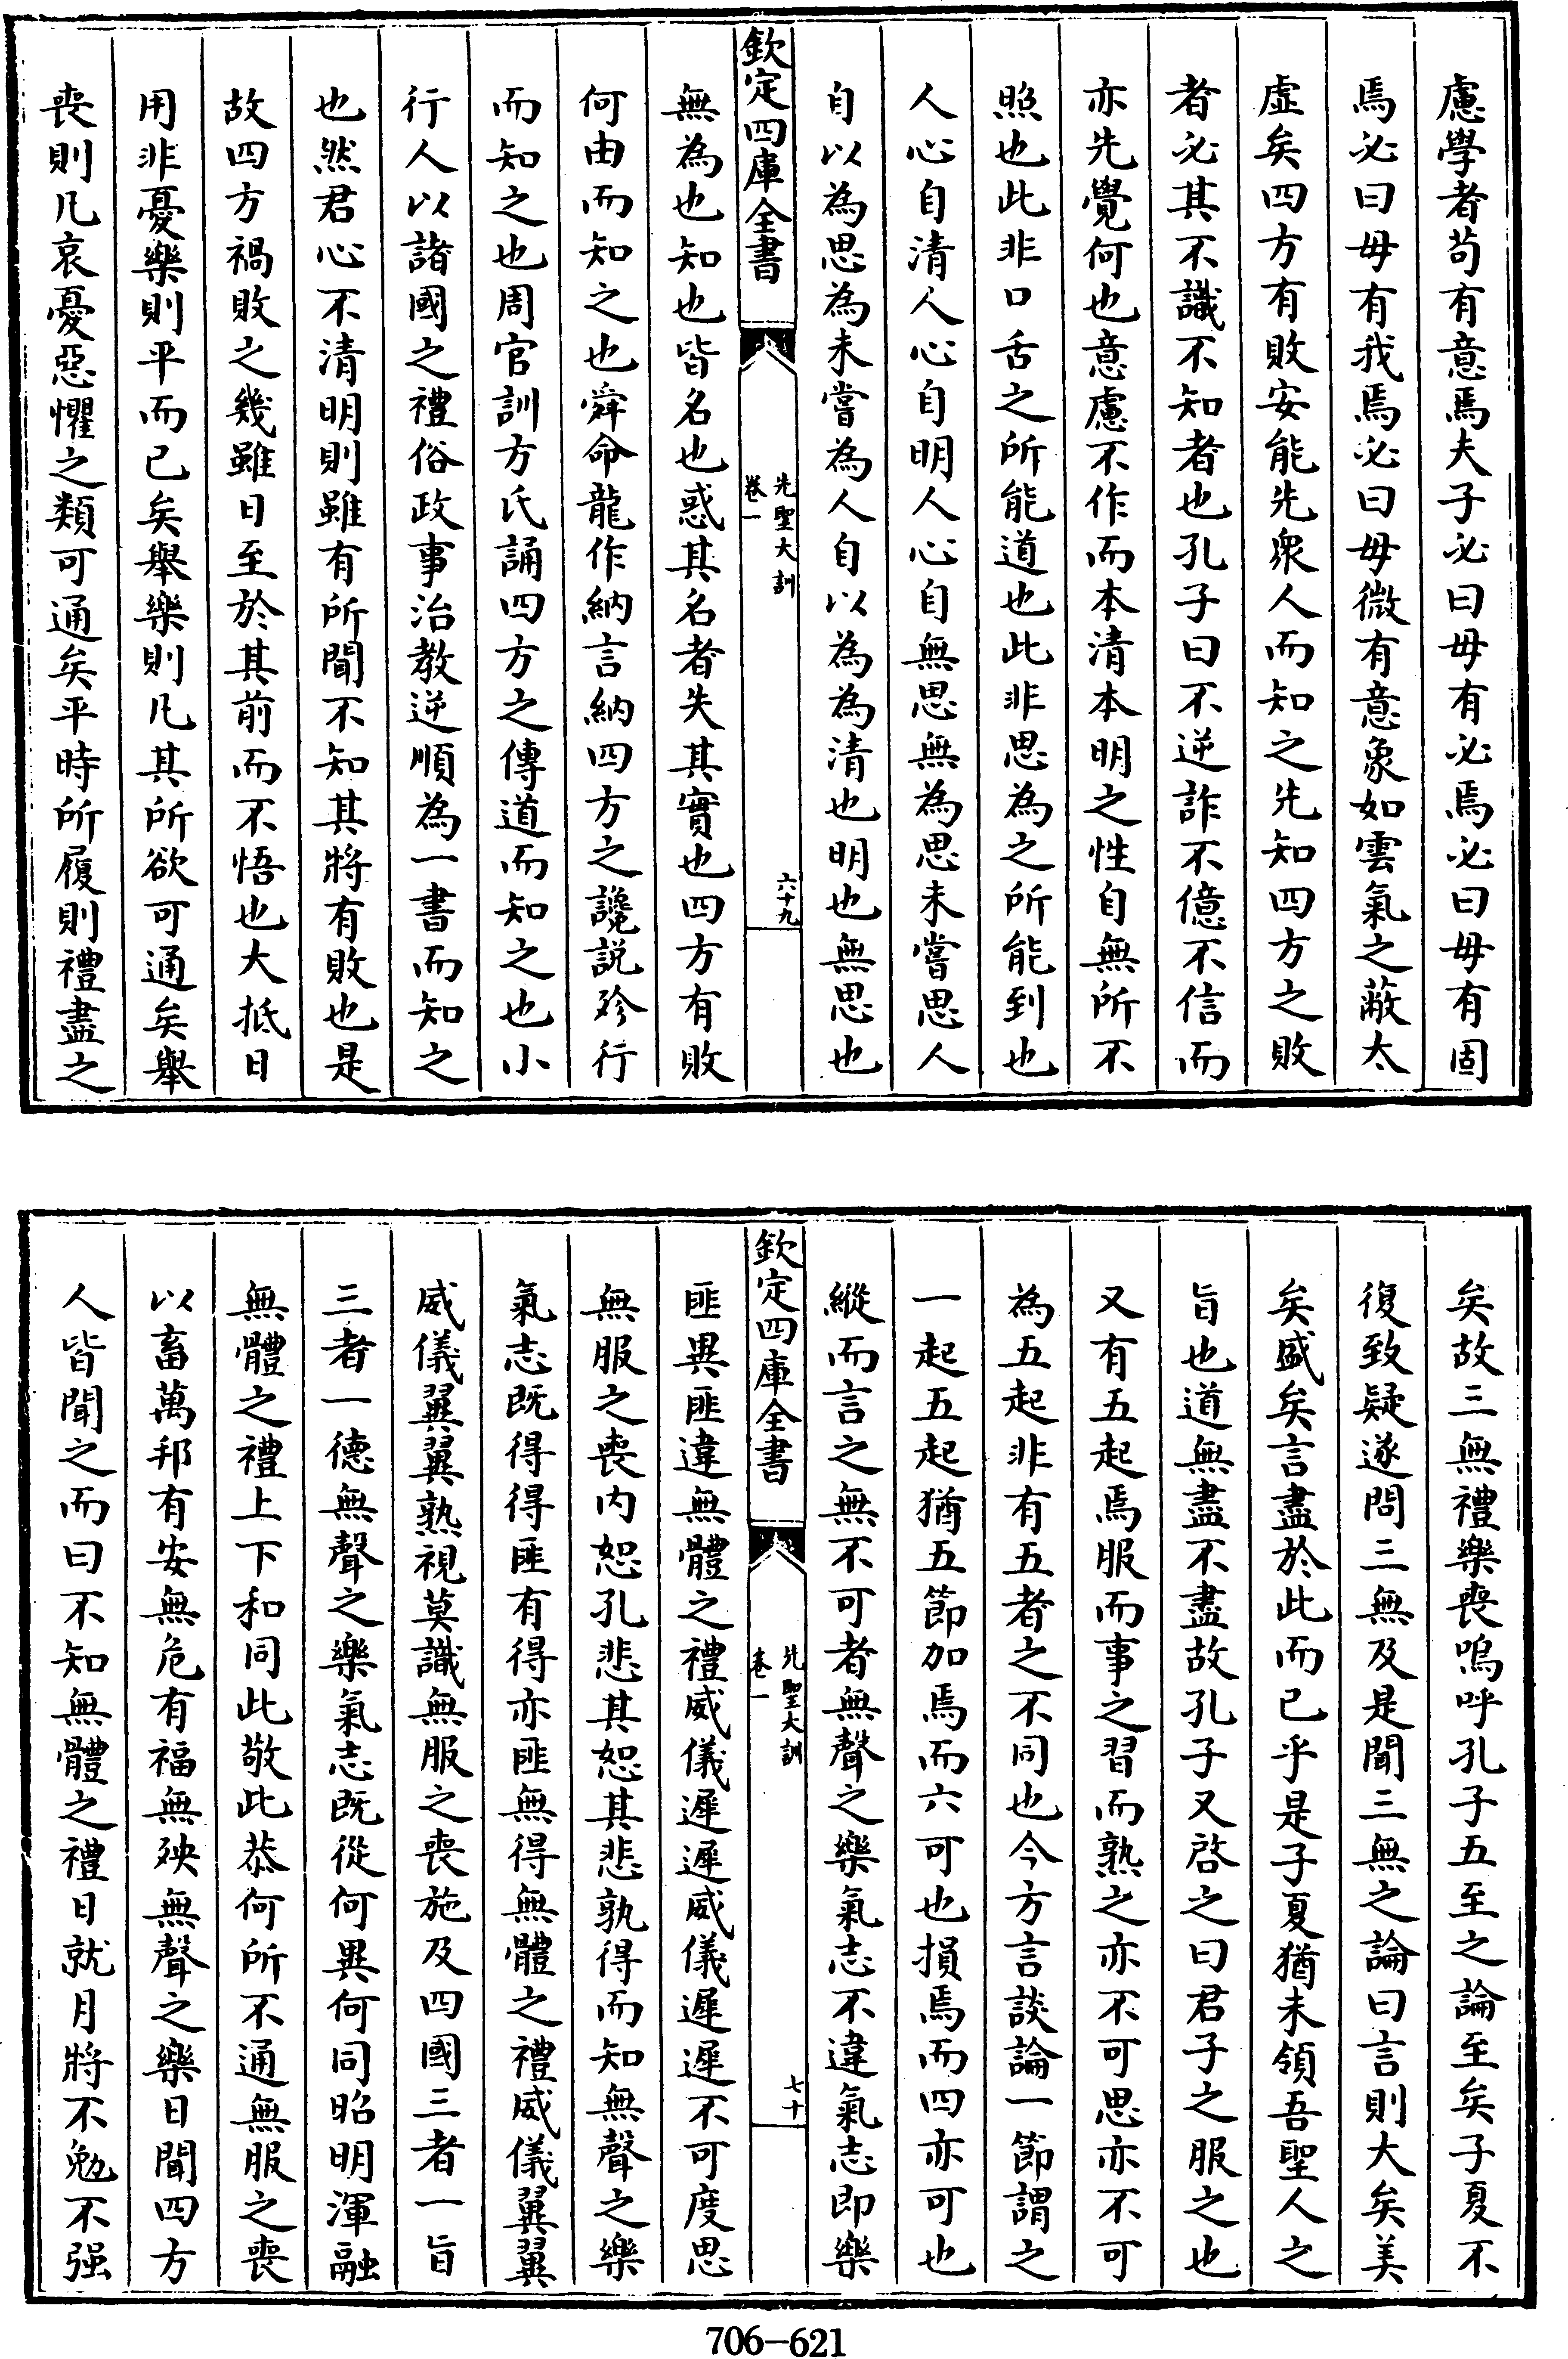 慮學者苟有意焉夫子必曰毋有必焉必曰毋有固
焉必曰毋有我焉必曰毋微有意象如雲氣之蔽太
虛矣四方有敗安能先衆人而知之先知四方之敗
者必其不識不知者也孔子曰不逆詐不億不信而
亦先覺何也意慮不作而本清本明之性自無所不
照也此非口舌之所能道也此非思為之所能到也
人心自清人心自明人心自無思無為思未嘗思人
自以為思為未嘗為人自以為為清也明也無思也
欽定四庫全書
先聖大訓
卷一
六十九
無為也知也皆名也惑其名者失其實也四方有敗
何由而知之也舜命龍作納言納四方之讒説殄行
而知之也周官訓方氏誦四方之傳道而知之也小
行人以諸國之禮俗政事治教逆順為一書而知之
也然君心不清明則雖有所聞不知其將有敗也是
故四方禍敗之幾雖日至於其前而不悟也大抵日
用非憂樂則平而已矣舉樂則凡其所欲可通矣舉
喪則凡哀憂惡懼之類可通矣平時所履則禮盡之
矣故三無禮樂喪嗚呼孔子五至之論至矣子夏不
復致疑遂問三無及是聞三無之論曰言則大矣美
矣盛矣言盡於此而已乎是子夏猶未領吾聖人之
旨也道無盡不盡故孔子又啓之曰君子之服之也
又有五起焉服而事之習而熟之亦不可思亦不可
為五起非有五者之不同也今方言談論一節謂之
一起五起猶五節加焉而六可也損焉而四亦可也
縱而言之無不可者無聲之樂氣志不違氣志即樂
欽定四庫全書
先聖大訓
卷一
七十
匪異匪違無體之禮威儀遲遲威儀遲遲不可度思
無服之喪内恕孔悲其恕其悲孰得而知無聲之樂
氣志既得得匪有得亦匪無得無體之禮威儀翼翼
威儀翼翼熟視莫識無服之喪施及四國三者一旨
三者一德無聲之樂氣志既從何異何同昭明渾融
無體之禮上下和同此敬此恭何所不通無服之喪
以畜萬邦有安無危有福無殃無聲之樂日聞四方
人皆聞之而曰不知無體之禮日就月將不勉不强
706-621